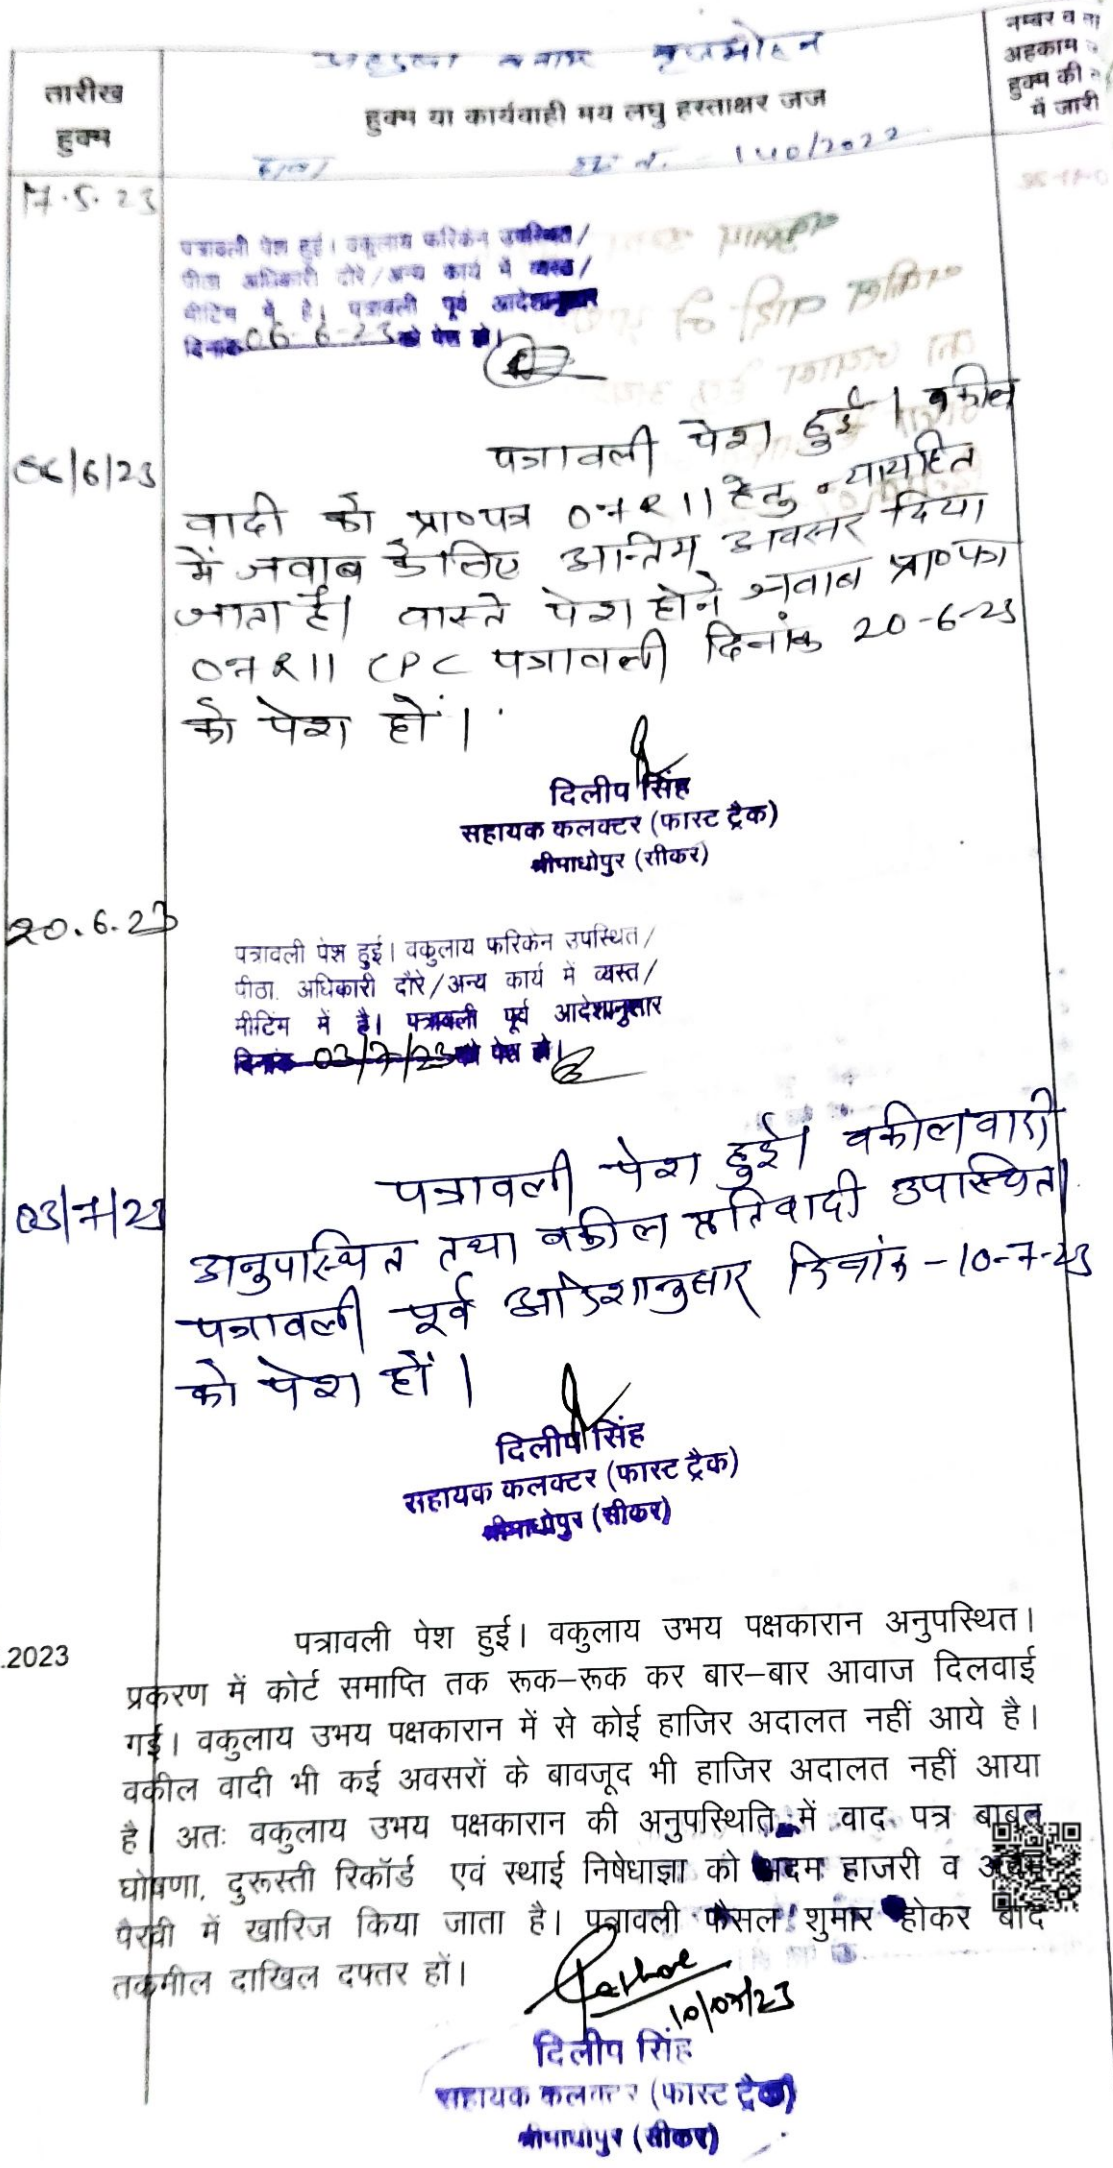 बनाम बृजमोहन
नम्बर व ता
अहकाम
हुक्म की
में जारी
तारीख
हुक्म
हुक्म या कार्यवाही मय लघु हस्ताक्षर जज
140/2022
17.5.23
पत्रावली पेश हुई। वकुलाय फरिकेन उपस्थित/
पीठा अधिकारी दौरे/अन्य कार्य में व्यस्त/
मीटिंग में है। पत्रावली पूर्व आदेशानुसार
दिनांक 06-6-23 को पेश हो।
06/6/23
पत्रावली पेश हुई। वकील
वादी को प्रा०पत्र 07R11 हेतु न्यायहित
में जवाब के लिए अन्तिम अवसर दिया
जाता है। वास्ते पेश होने जवाब प्रा०पत्र
07R11 CPC पत्रावली दिनांक 20-6-23
को पेश हों।
दिलीप सिंह
सहायक कलक्टर (फास्ट ट्रैक)
श्रीमाधोपुर (सीकर)
20.6.23
पत्रावली पेश हुई। वकुलाय फरिकेन उपस्थित/
पीठा. अधिकारी दौरे/अन्य कार्य में व्यस्त/
मीटिंग में है। पत्रावली पूर्व आदेशानुसार
दिनांक 03/7/23 को पेश हो।
03/7/23
पत्रावली पेश हुई। वकील वादी
अनुपस्थित तथा वकील प्रतिवादी उपस्थित।
पत्रावली पूर्व आदेशानुसार दिनांक - 10-7-23
को पेश हों।
दिलीप सिंह
सहायक कलक्टर (फास्ट ट्रैक)
श्रीमाधोपुर (सीकर)
.2023
पत्रावली पेश हुई। वकुलाय उभय पक्षकारान अनुपस्थित।
प्रकरण में कोर्ट समाप्ति तक रूक–रूक कर बार–बार आवाज दिलवाई
गई। वकुलाय उभय पक्षकारान में से कोई हाजिर अदालत नहीं आये है।
वकील वादी भी कई अवसरों के बावजूद भी हाजिर अदालत नहीं आया
है। अतः वकुलाय उभय पक्षकारान की अनुपस्थिति में वाद पत्र बाबत
घोषणा, दुरूस्ती रिकॉर्ड एवं स्थाई निषेधाज्ञा को अदम हाजरी व अदम
पैरवी में खारिज किया जाता है। पत्रावली फैसल शुमार होकर बाद
तकमील दाखिल दफ्तर हों।
10/07/23
दिलीप सिंह
सहायक कलक्टर (फास्ट ट्रैक)
श्रीमाधोपुर (सीकर)